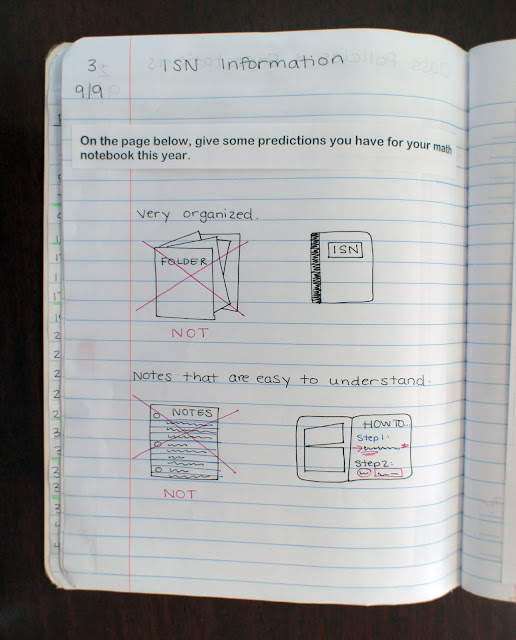 3 ISN Information
9/9
On the page below, give some predictions you have for your math
notebook this year.
Very organized.
FOLDER
ISN
NOT
Notes that are easy to understand.
NOTES
HOW TO...
Step 1:
Step 2:
NOT